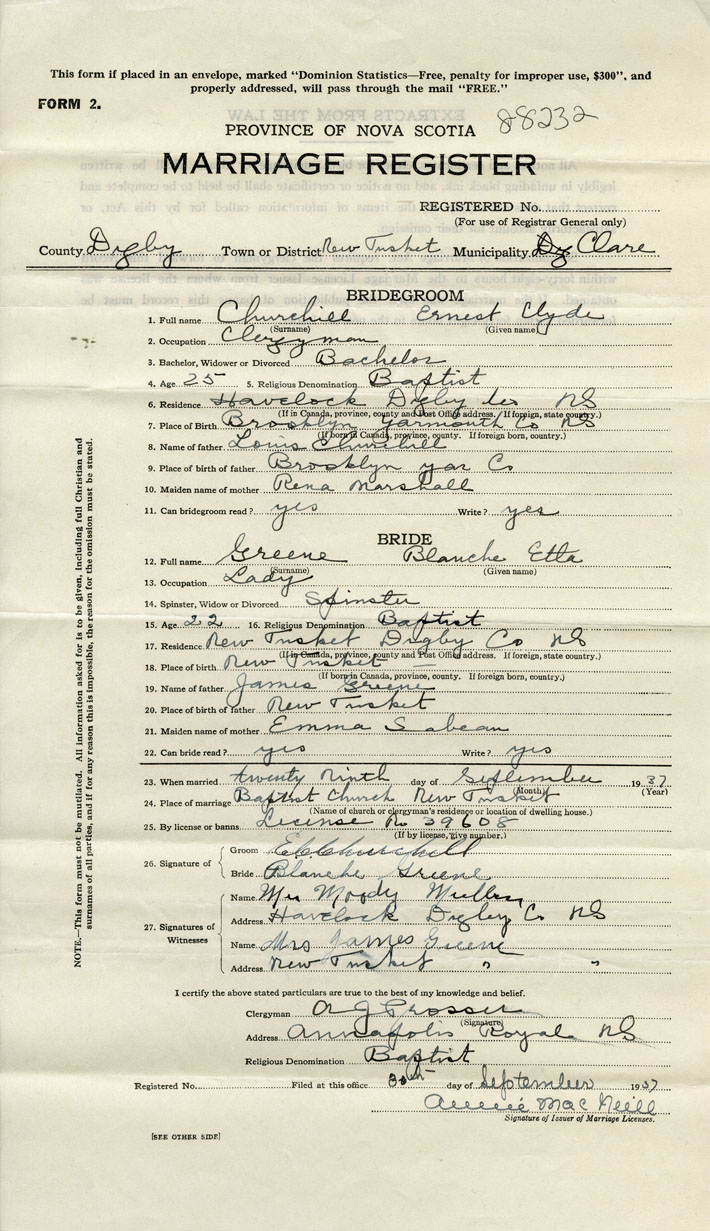 This form if placed in an envelope, marked "Dominion Statistics—Free, penalty for improper use, $300", and
properly addressed, will pass through the mail "FREE."
FORM 2.
88232
PROVINCE OF NOVA SCOTIA
MARRIAGE REGISTER
REGISTERED No.
(For use of Registrar General only)
County Digby Town or District New Tusket Municipality Clare
BRIDEGROOM
1. Full name Churchill Ernest Clyde
(Surname) (Given name)
2. Occupation Clergyman
3. Bachelor, Widower or Divorced Bachelor
4. Age 25 5. Religious Denomination Baptist
6. Residence Havelock Digby Co NS
(If in Canada, province, county and Post Office address. If foreign, state country.)
7. Place of Birth Brooklyn Yarmouth Co NS
(If born in Canada, province, county. If foreign born, country.)
8. Name of father Louis Churchill
9. Place of birth of father Brooklyn Yar Co
10. Maiden name of mother Rena Marshall
11. Can bridegroom read? yes Write? yes
BRIDE
12. Full name Greene Blanche Etta
(Surname) (Given name)
13. Occupation Lady
14. Spinster, Widow or Divorced Spinster
15. Age 22 16. Religious Denomination Baptist
17. Residence New Tusket Digby Co NS
(If in Canada, province, county and Post Office address. If foreign, state country.)
18. Place of birth New Tusket
(If born in Canada, province, county. If foreign born, country.)
19. Name of father James Greene
20. Place of birth of father New Tusket
21. Maiden name of mother Emma Sabean
22. Can bride read? yes Write? yes
23. When married twenty Ninth day of September 1937
(Month) (Year)
24. Place of marriage Baptist Church New Tusket
(Name of church or clergyman's residence or location of dwelling house.)
25. By license or banns License No 39608
(If by license, give number.)
26. Signature of
Groom E C Churchill
Bride Blanche Greene
27. Signatures of Witnesses
Name Mrs Moody Mullen
Address Havelock Digby Co NS
Name Mrs James Greene
Address New Tusket " "
I certify the above stated particulars are true to the best of my knowledge and belief.
Clergyman A J Prosser
(Signature)
Address Annapolis Royal NS
Religious Denomination Baptist
Registered No. Filed at this office 30th day of September 1937
Annie MacNeill
Signature of Issuer of Marriage Licenses.
[SEE OTHER SIDE]
NOTE.—This form must not be mutilated. All information asked for is to be given, including full Christian and
surnames of all parties, and if for any reason this is impossible, the reason for the omission must be stated.